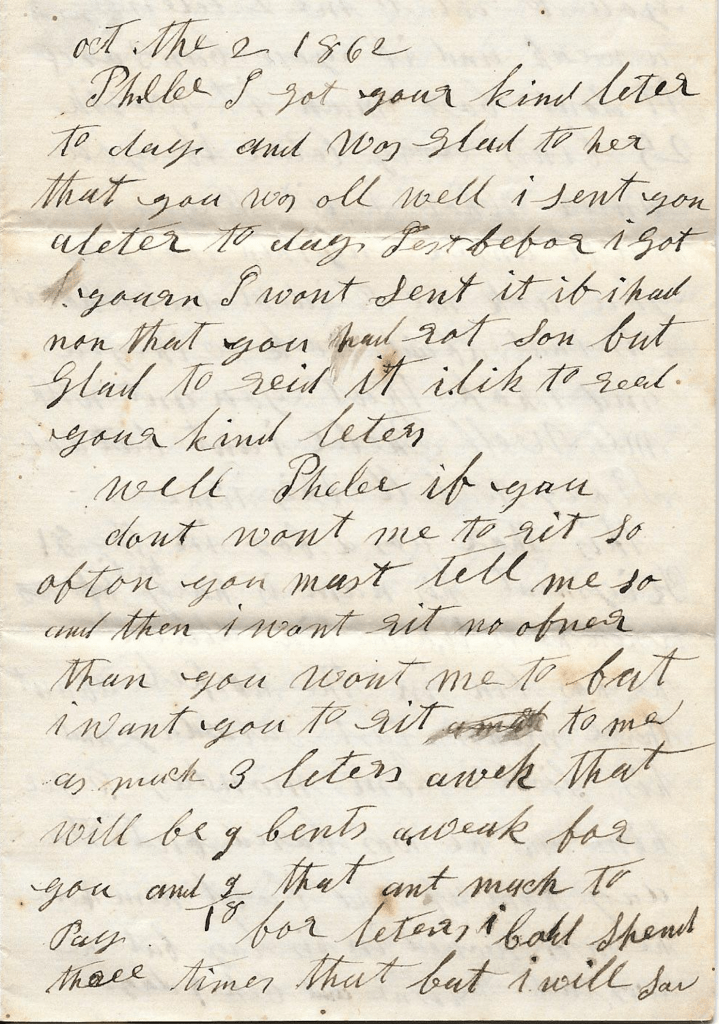 oct the 2 1862
Phebe I got your kind leter
to day and was Glad to her
that you was all well i sent you
aleter to day Jest befor i Got
yourn I wont sent it if i had
non that you had rot son but
Glad to reid it i lik to read
your kind leters
well Phebe if you
dont wont me to rit so
ofton you must tell me so
and then i want rit no ofner
than you wont me to but
i want you to rit to me
as much 3 leters a wek that
will be 9 bents a weak for
you and 9 that ant much to
18
Pay for leters i bold Spend
three times that but i will